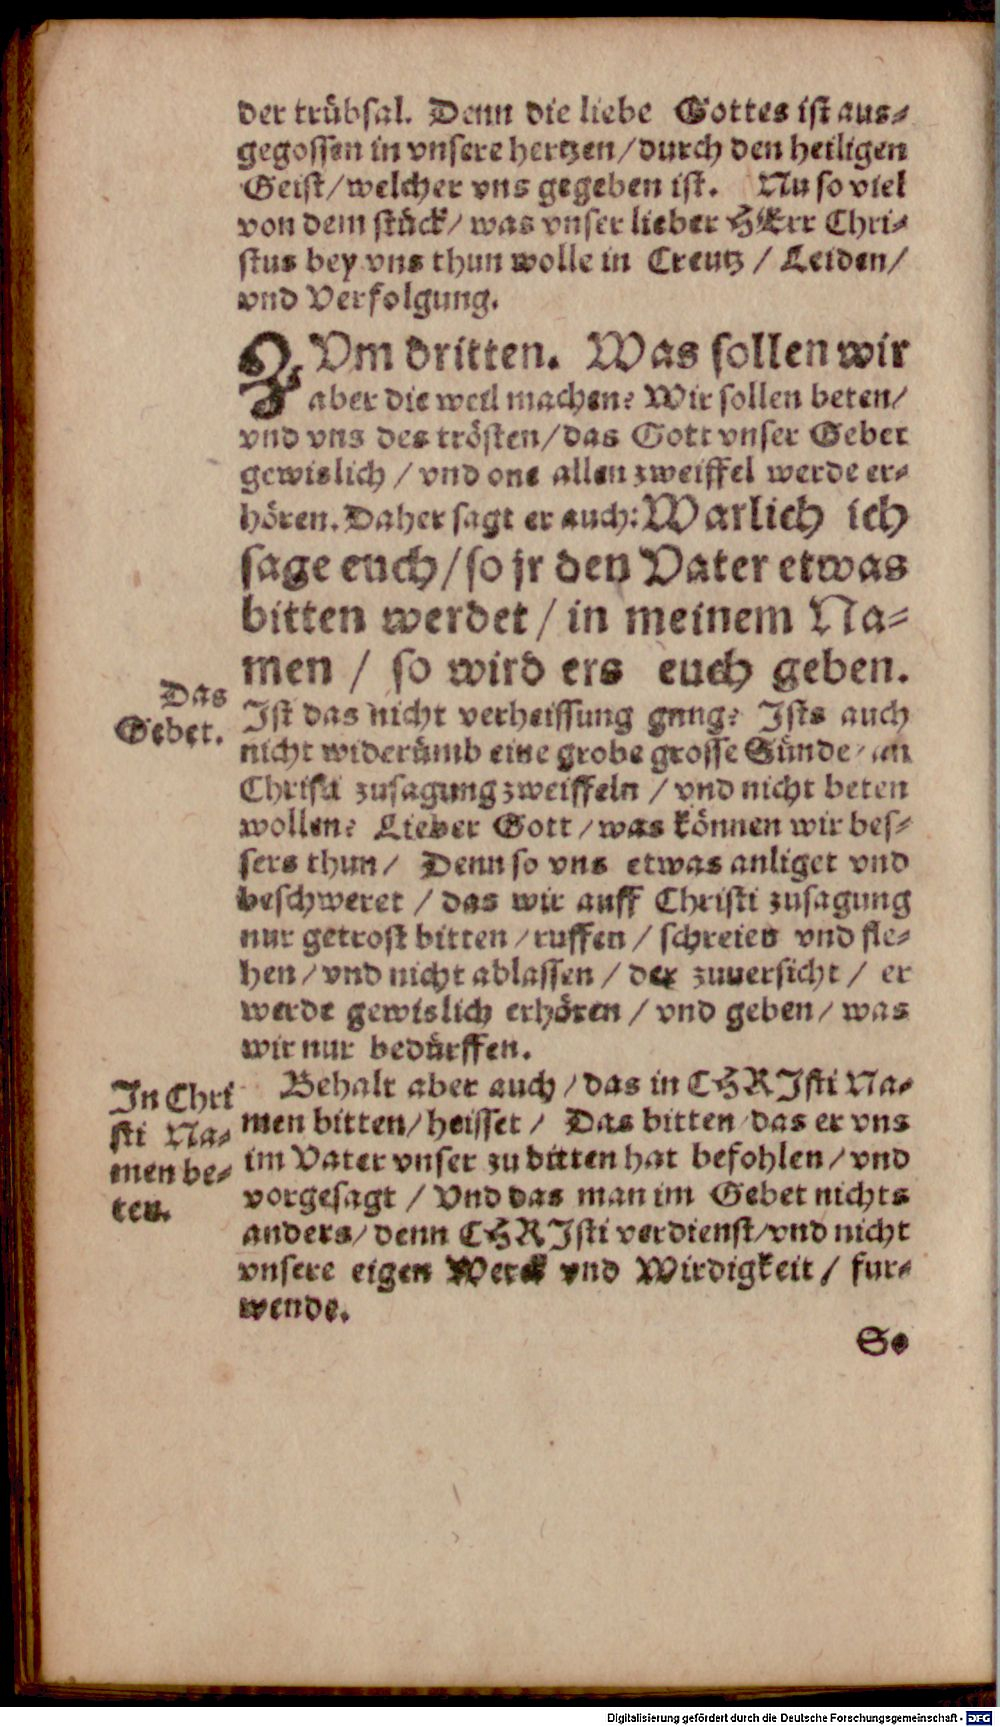 der trübsal. Denn die liebe Gottes ist aus⸗
gegossen in vnsere hertzen/durch den heiligen
Geist/welcher vns gegeben ist. Nu so viel
von dem stück/ was vnser lieber HErr Chri⸗
stus bey vns thun wolle in Creutz / Leiden/
vnd Verfolgung.
ZVm dritten. Was sollen wir
aber die weil machen? Wir sollen beten/
vnd vns des trösten/das Gott vnser Gebet
gewislich / vnd one allen zweiffel werde er⸗
hören. Daher sagt er auch: Warlich ich
sage euch/so jr den Vater etwas
bitten werdet / in meinem Na⸗
men / so wird ers euch geben.
Das
Gebet.
Ist das nicht verheissung gnug? Ists auch
nicht widerümb eine grobe grosse Sünde/ an
Christi zusagung zweiffeln / vnd nicht beten
wollen? Lieber Gott/was können wir bes⸗
sers thun/ Denn so vns etwas anliget vnd
beschweret / das wir auff Christi zusagung
nur getrost bitten/ruffen / schreien vnd fle⸗
hen/vnd nicht ablassen / der zuuersicht / er
werde gewislich erhören / vnd geben/ was
wir nur bedürffen.
In Chri
sti Na⸗
men be⸗
ten.
Behalt aber auch/das in CHRIsti Na⸗
men bitten/heisset / Das bitten das er vns
im Vater vnser zu bitten hat befohlen/vnd
vorgesagt / Vnd das man im Gebet nichts
anders/denn CHRIsti verdienst/vnd nicht
vnsere eigen Werck vnd Wirdigkeit / fur⸗
wende.
So
Digitalisierung gefördert durch die Deutsche Forschungsgemeinschaft - DFG